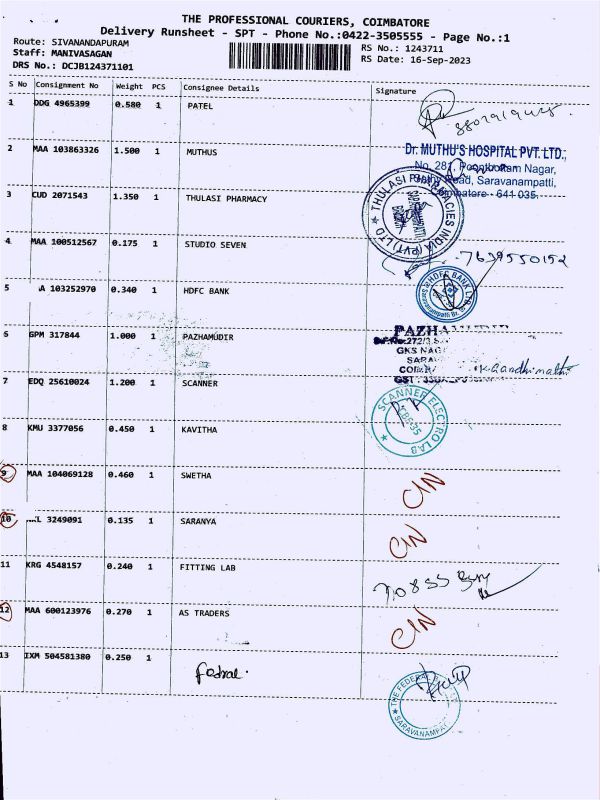 THE PROFESSIONAL COURIERS, COIMBATORE
Delivery Runsheet - SPT - Phone No.:0422-3505555 - Page No.:1
Route: SIVANANDAPURAM
Staff: MANIVASAGAN
DRS No.: DCJB124371101
RS No.: 1243711
RS Date: 16-Sep-2023
S No Consignment No Weight PCS Consignee Details Signature
1 DDG 4965399 0.580 1 PATEL
2 MAA 103863326 1.500 1 MUTHUS
Dr. MUTHU'S HOSPITAL PVT. LTD.,
No. 281, Nagar,
Road, Saravanampatti,
- 641 035.
3 CUD 2071543 1.350 1 THULASI PHARMACY
THULASI PHARMACIES INDIA (PVT) LTD
4 MAA 100512567 0.175 1 STUDIO SEVEN
7639550152
5 A 103252970 0.340 1 HDFC BANK
HDFC BANK LTD.
6 GPM 317844 1.000 1 PAZHAMUDIR
GKS
K. Gandhimathi
7 EDQ 25610024 1.200 1 SCANNER
SCANNER ELECTRO LAB
CBE-35
8 KMU 3377056 0.450 1 KAVITHA
9 MAA 104069128 0.460 1 SWETHA
CIN
10 L 3249091 0.135 1 SARANYA
CIN
11 KRG 4548157 0.240 1 FITTING LAB
12 MAA 600123976 0.270 1 AS TRADERS
CIN
13 IXM 504581380 0.250 1
Fedral.
THE FEDERAL
SARAVANAMPAT